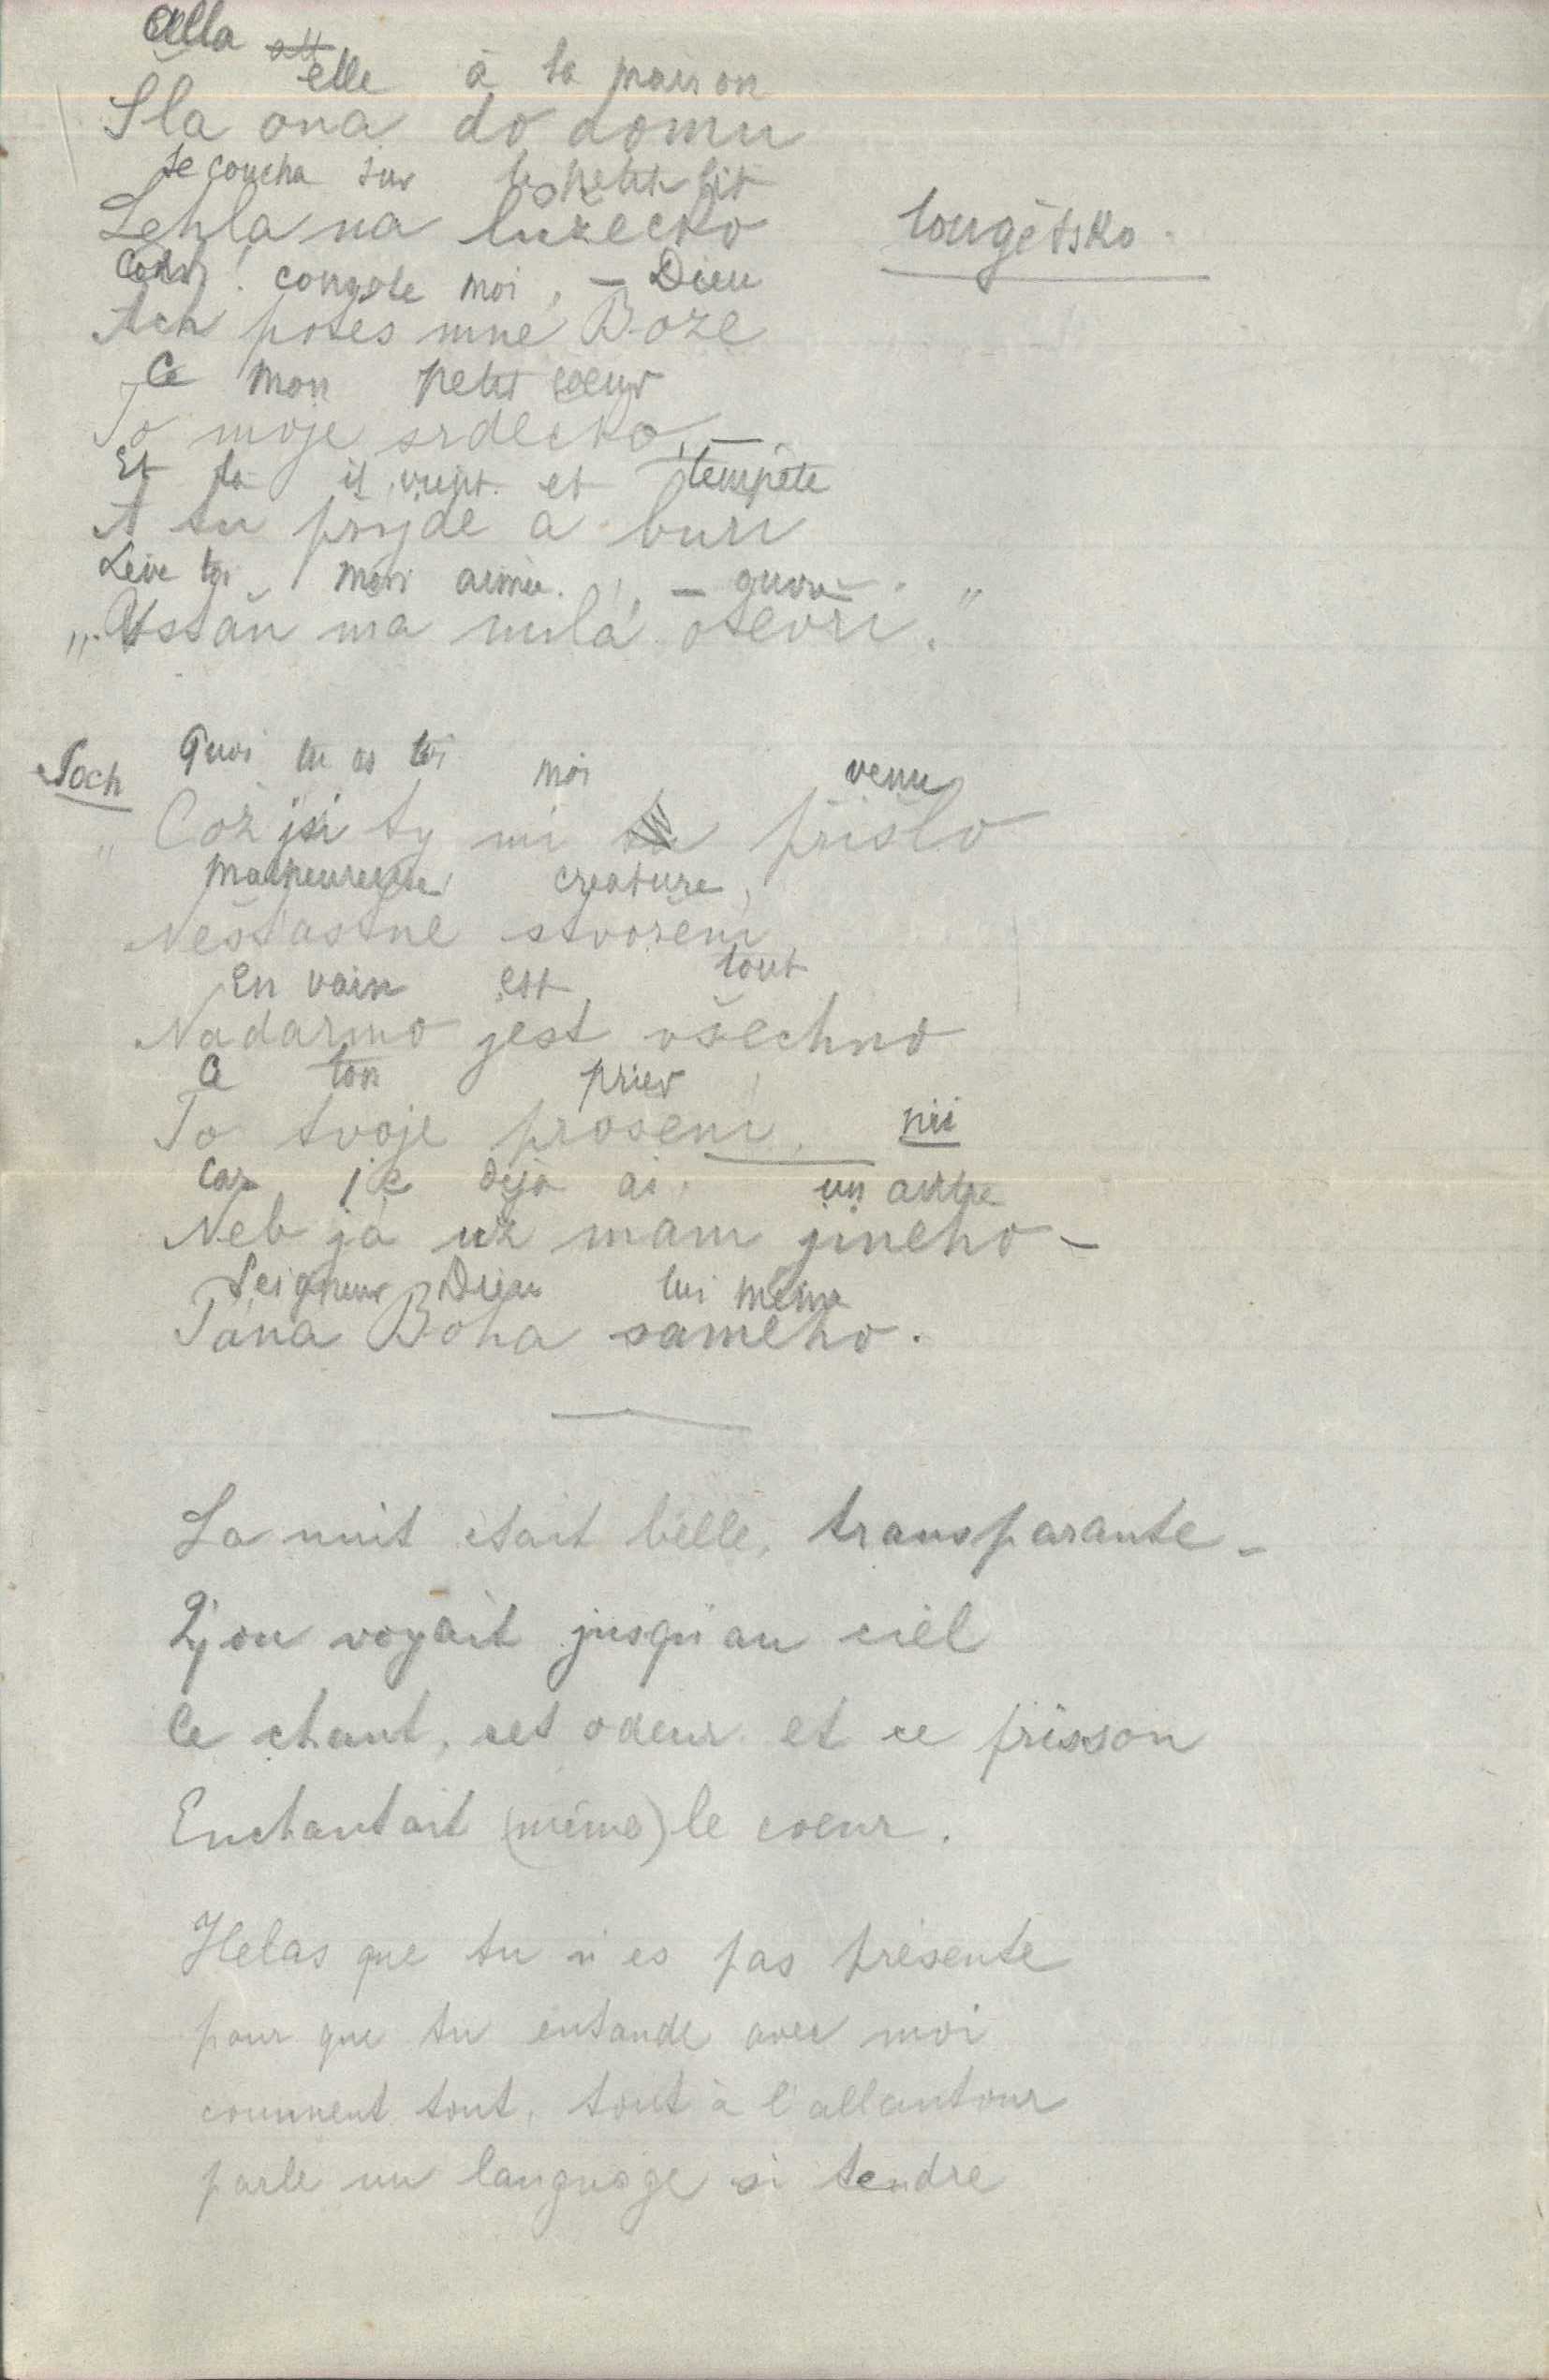 Alla elle à la maison
Sla ona do domu
se coucha sur le petit lit
Lehla na lužecko lougètsko.
console moi, – Dieu
Ach potes mne Bože
Ce mon petit coeur
To moje srdecko, –
Et la il vient et tempête
A tu přijde a buri
Leve toi mon aimée. – ouvre. "
„ Vstaň ma milá otevři.
Quoi tu as toi moi venu
Soch
„ Což jsi ty mi přišlo
malheureuse créature,
Nešťastne stvořeni
En vain est tout
Nadarmo jest všechno
Ce ton prier
To tvoje proseni, nii
Car je deja ai un autre
Neb já už mam jineho –
Seigneur Dieu lui même
Pána Boha samého.
La nuit était belle, transparante –
Q'on voyait jusqu'au ciel
Ce chant, cet odeur et ce frisson
Enchantait (même) le coeur.
Helas que tu n'es pas présente
pour que tu entande avec moi
comment tout, tout à l'allantour
parle un language si tendre